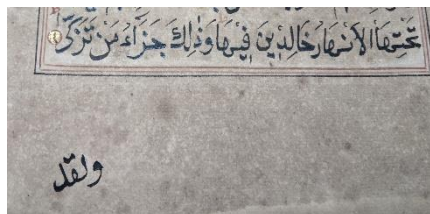 تَحْتِهَا الْأَنْهَارُ خَالِدِينَ فِيهَا وَذَٰلِكَ جَزَاءُ مَنْ تَزَكَّىٰ
ولقد